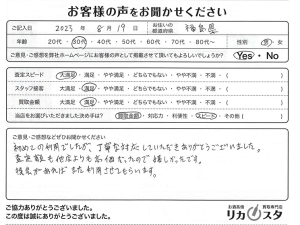 お客様の声をお聞かせください
ご記入日 2023年 8月 19日 お住いの都道府県 福島県
年齢 20代・30代・40代・50代・60代・70代・80代〜 性別 男・女
ご意見・ご感想を弊社ホームページにお客様の声として掲載させて頂いてもよろしいでしょうか？ Yes・No
査定スピード 大満足・満足・やや満足・どちらでもない・やや不満・不満・( )
スタッフ接客 大満足・満足・やや満足・どちらでもない・やや不満・不満・( )
買取金額 大満足・満足・やや満足・どちらでもない・やや不満・不満・( )
当店をお選びいただきました決め手は？ 買取金額・対応力・利便性・スピード・その他( )
ご意見・ご感想などぜひお聞かせください。
初めての利用でしたが、丁寧な対応していただきありがとうございました。
査定額も他店よりも高価だったので嬉しかったです。
機会があればまた利用させてもらいます。
ご協力ありがとうございました。
この度は誠にありがとうございました。
お酒高価買取専門店
リカスタ